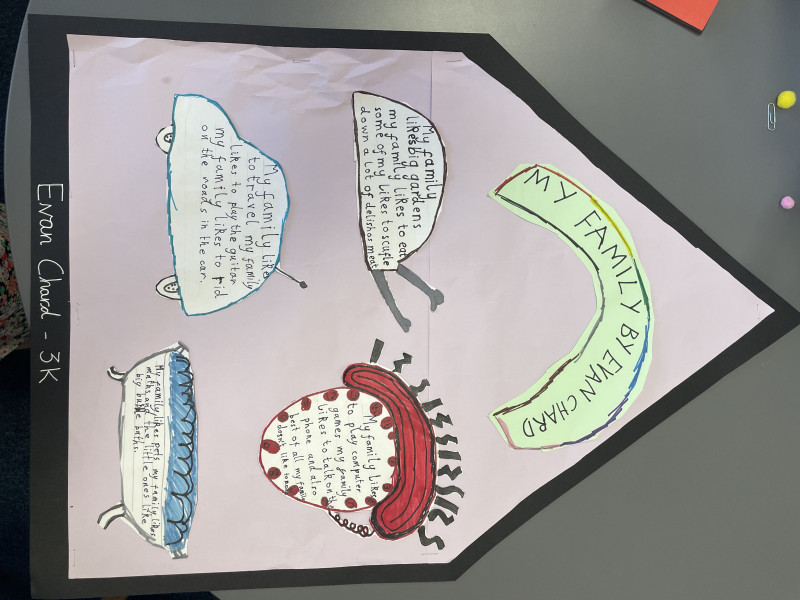 MY FAMILY BY EVAN CHARD
My family
likes big gardens
my family likes to eat
some of my likes to scufle
down a lot of delishos meat
My family likes
to play computer
games my family
likes to talk on the
phone and also
best of all my family
doesn't like to
My family likes
to travel my family
likes to play the guitar
my family likes to rid
on the roads in the car.
My family likes pets my family likes
maths and the little ones like
big bubble baths.
Evan Chard - 3K